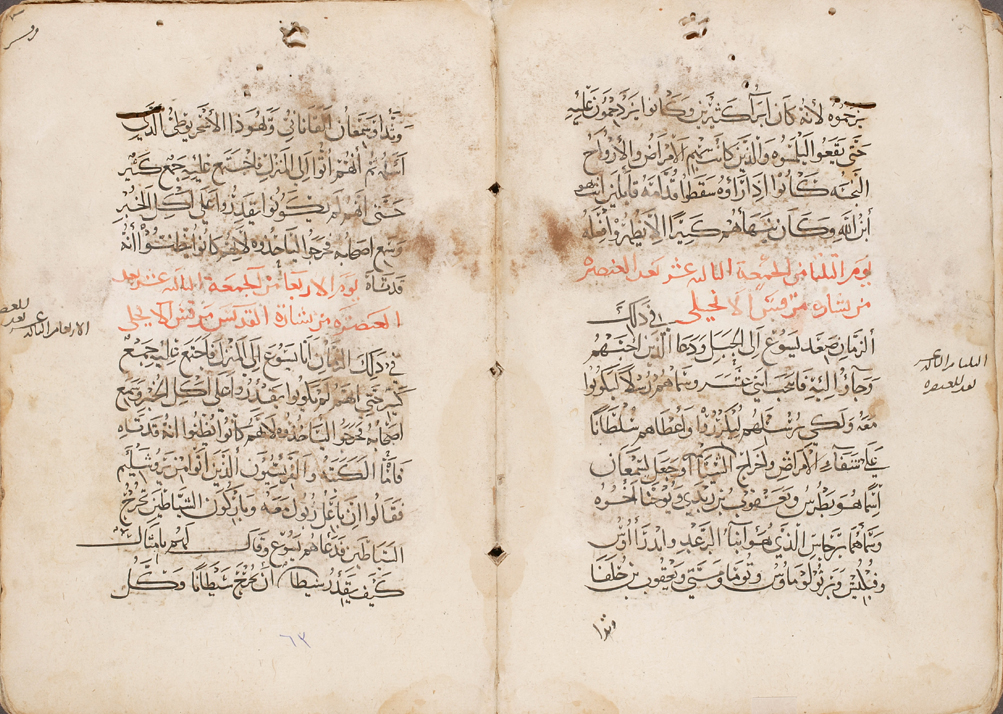 يزحموه لانه كان ابرا كثيرين وكانوا يزدحمون عليه
حتى يقعوا ليلمسوه والذين كانت بهم الامراض والارواح
النجسه كانوا اذا راوه سقطوا قدامه قايلين انت هو
ابن الله وكان ينهاهم كثيرا الا يظهروا فعله
يوم الثلثا من الجمعة الثالثه عشر بعد العنصره
من بشارة مرقس الانجيلي في ذلك
الزمان صعد يسوع الى الجبل ودعا الذين احبهم
وجاوا اليه فانتخب اثني عشر وسماهم رسلا ليكونوا
معه ولكي يرسلهم ليكرزوا واعطاهم سلطانا
على شفاء الامراض واخراج الشياطين وجعل لسمعان
اسما هو بطرس ويعقوب بن زبدي ويوحنا اخوه
وسماهما بنرجاس الذي هو ابنا الرعد واندراوس
وفيلبس وبرثولوماوس وتوما ومتى ويعقوب بن حلفا
وتدا
الثلثا من الثالثه عشر
بعد العنصره
وتدا وسمعان القاناني ويهوذا الاسخريوطي الذي
اسلمه ثم انهم اتوا الى المنزل فاجتمع عليه جمع كثير
حتى انهم لم يكونوا يقدروا على اكل الخبز
وسمع اصحابه فخرجوا لياخذوه لانهم كانوا يظنوا انه
قد تاه يوم الاربعا من الجمعة الثالثه عشر بعد
العنصره من بشارة القديس مرقس الانجيلي
في ذلك الزمان اتا يسوع الى المنزل فاجتمع عليه جمع
كثير حتى انهم لم يكونوا يقدروا على اكل الخبز وسمع
اصحابه فخرجوا لياخذوه لانهم كانوا يظنوا انه قد تاه
فاما الكتبه والفريسيون الذين اتوا من يروشليم
فقالوا ان باعل زبول معه وباركون الشياطين يخرج
الشياطين فدعاهم يسوع وقال لهم بامثال
كيف يقدر شيطان ان يخرج شيطانا وكل
الاربعا من الثالثه عشر
بعد العنصره
٦٣